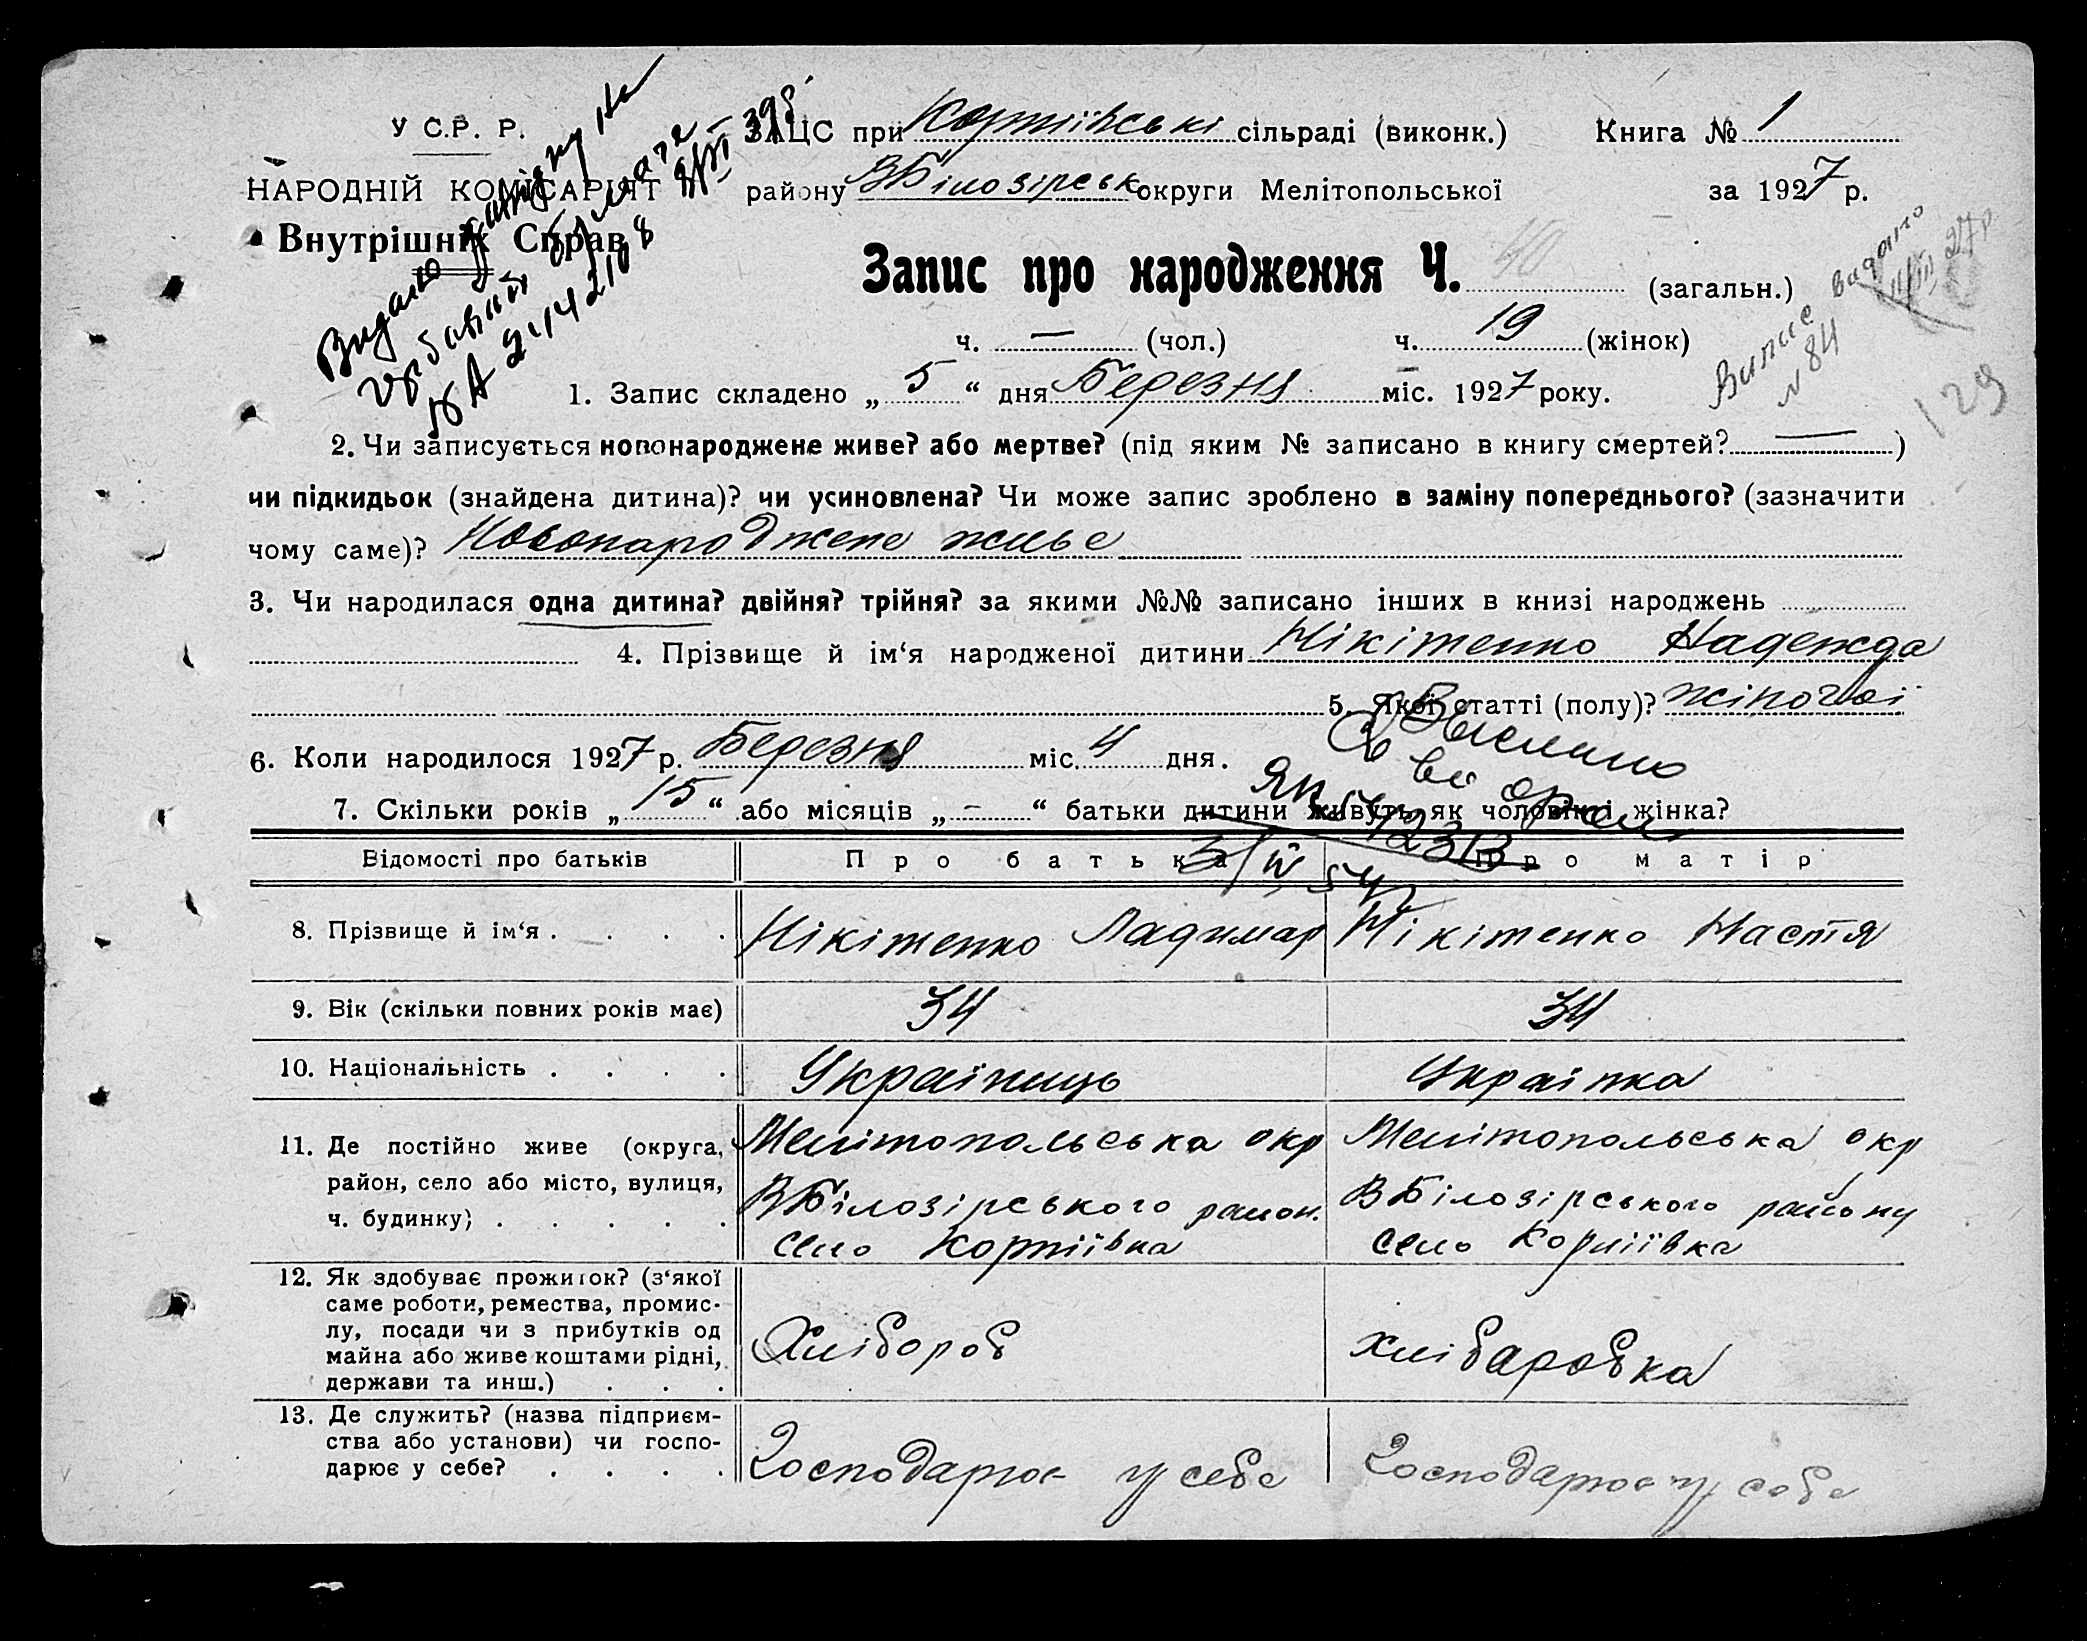 У С.Р. Р.
НАРОДНІЙ КОМІСАРІЯТ
Внутрішніх Справ
ЗАЦС при Корніївські сільраді (виконк.) Книга № 1
району ВБілозірськ округи Мелітопольської за 1927 р.
Запис про народження Ч. 40 (загальн.)
ч. — (чол.) ч. 19 (жінок)
Випис видано
№ 84
129
1. Запис складено „ 5 “ дня Березня міс. 1927 року.
2. Чи записується новонароджене живе? або мертве? (під яким № записано в книгу смертей? — )
чи підкидьок (знайдена дитина)? чи усиновлена? Чи може запис зроблено в заміну попереднього? (зазначити
чому саме)? Новонароджене живе
3. Чи народилася одна дитина? двійня? трійня? за якими №№ записано інших в книзі народжень
4. Прізвище й ім‘я народженої дитини Нікітенко Надежда
5. Якої статті (полу)? жіночої
6. Коли народилося 1927 р. Березня міс. 4 дня.
7. Скільки років „ 15 “ або місяців „ - “ батьки дитини живуть як чоловік і жінка?
Відомості про батьків Про батька Про матір
8. Прізвище й ім‘я . . . . Нікітенко Ладимар Нікітенко Настя
9. Вік (скільки повних років має) 34 34
10. Національність . . . . Українець Українка
11. Де постійно живе (округа, Мелітопольська окр Мелітопольська окр
район, село або місто, вулиця, ВБілозірського район. ВБілозірського району
ч. будинку) . . . . . село Корніївка село Корніївка
12. Як здобуває прожиток? (з‘якої
саме роботи, ремества, промис-
лу, посади чи з прибутків од
майна або живе коштами рідні,
держави та инш.) . . . Хлібороб хлібаробка
13. Де служить? (назва підприєм-
ства або установи) чи госпо-
дарює у себе? . . . . Господарює у себе Господарює у себе